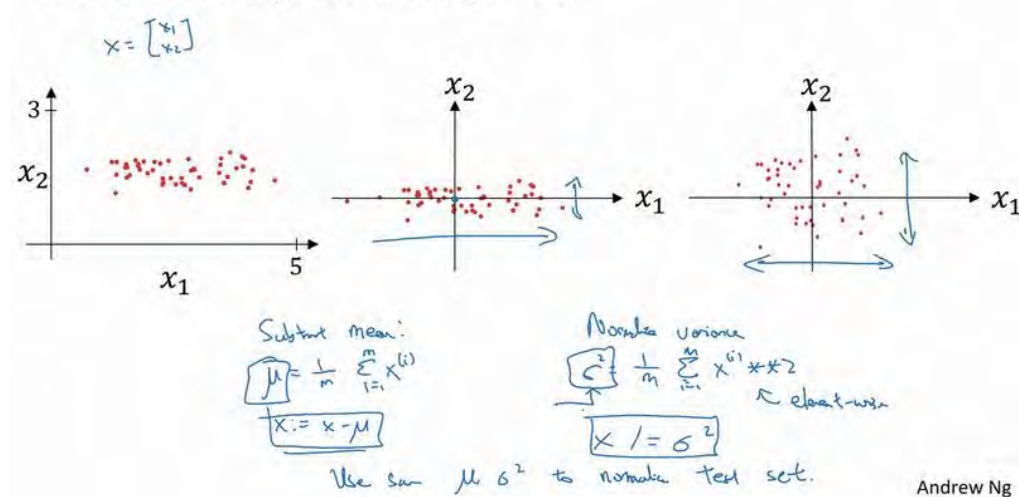 x = [x1 x2]
3
x2
x1
5
x2
x1
x2
x1
Subtract mean:
μ = 1/m Σ i=1 m x(i)
x := x - μ
Normalize variance
σ² = 1/m Σ i=1 m x(i) **2
↖ element-wise
x /= σ²
Use same μ σ² to normalize test set.
Andrew Ng